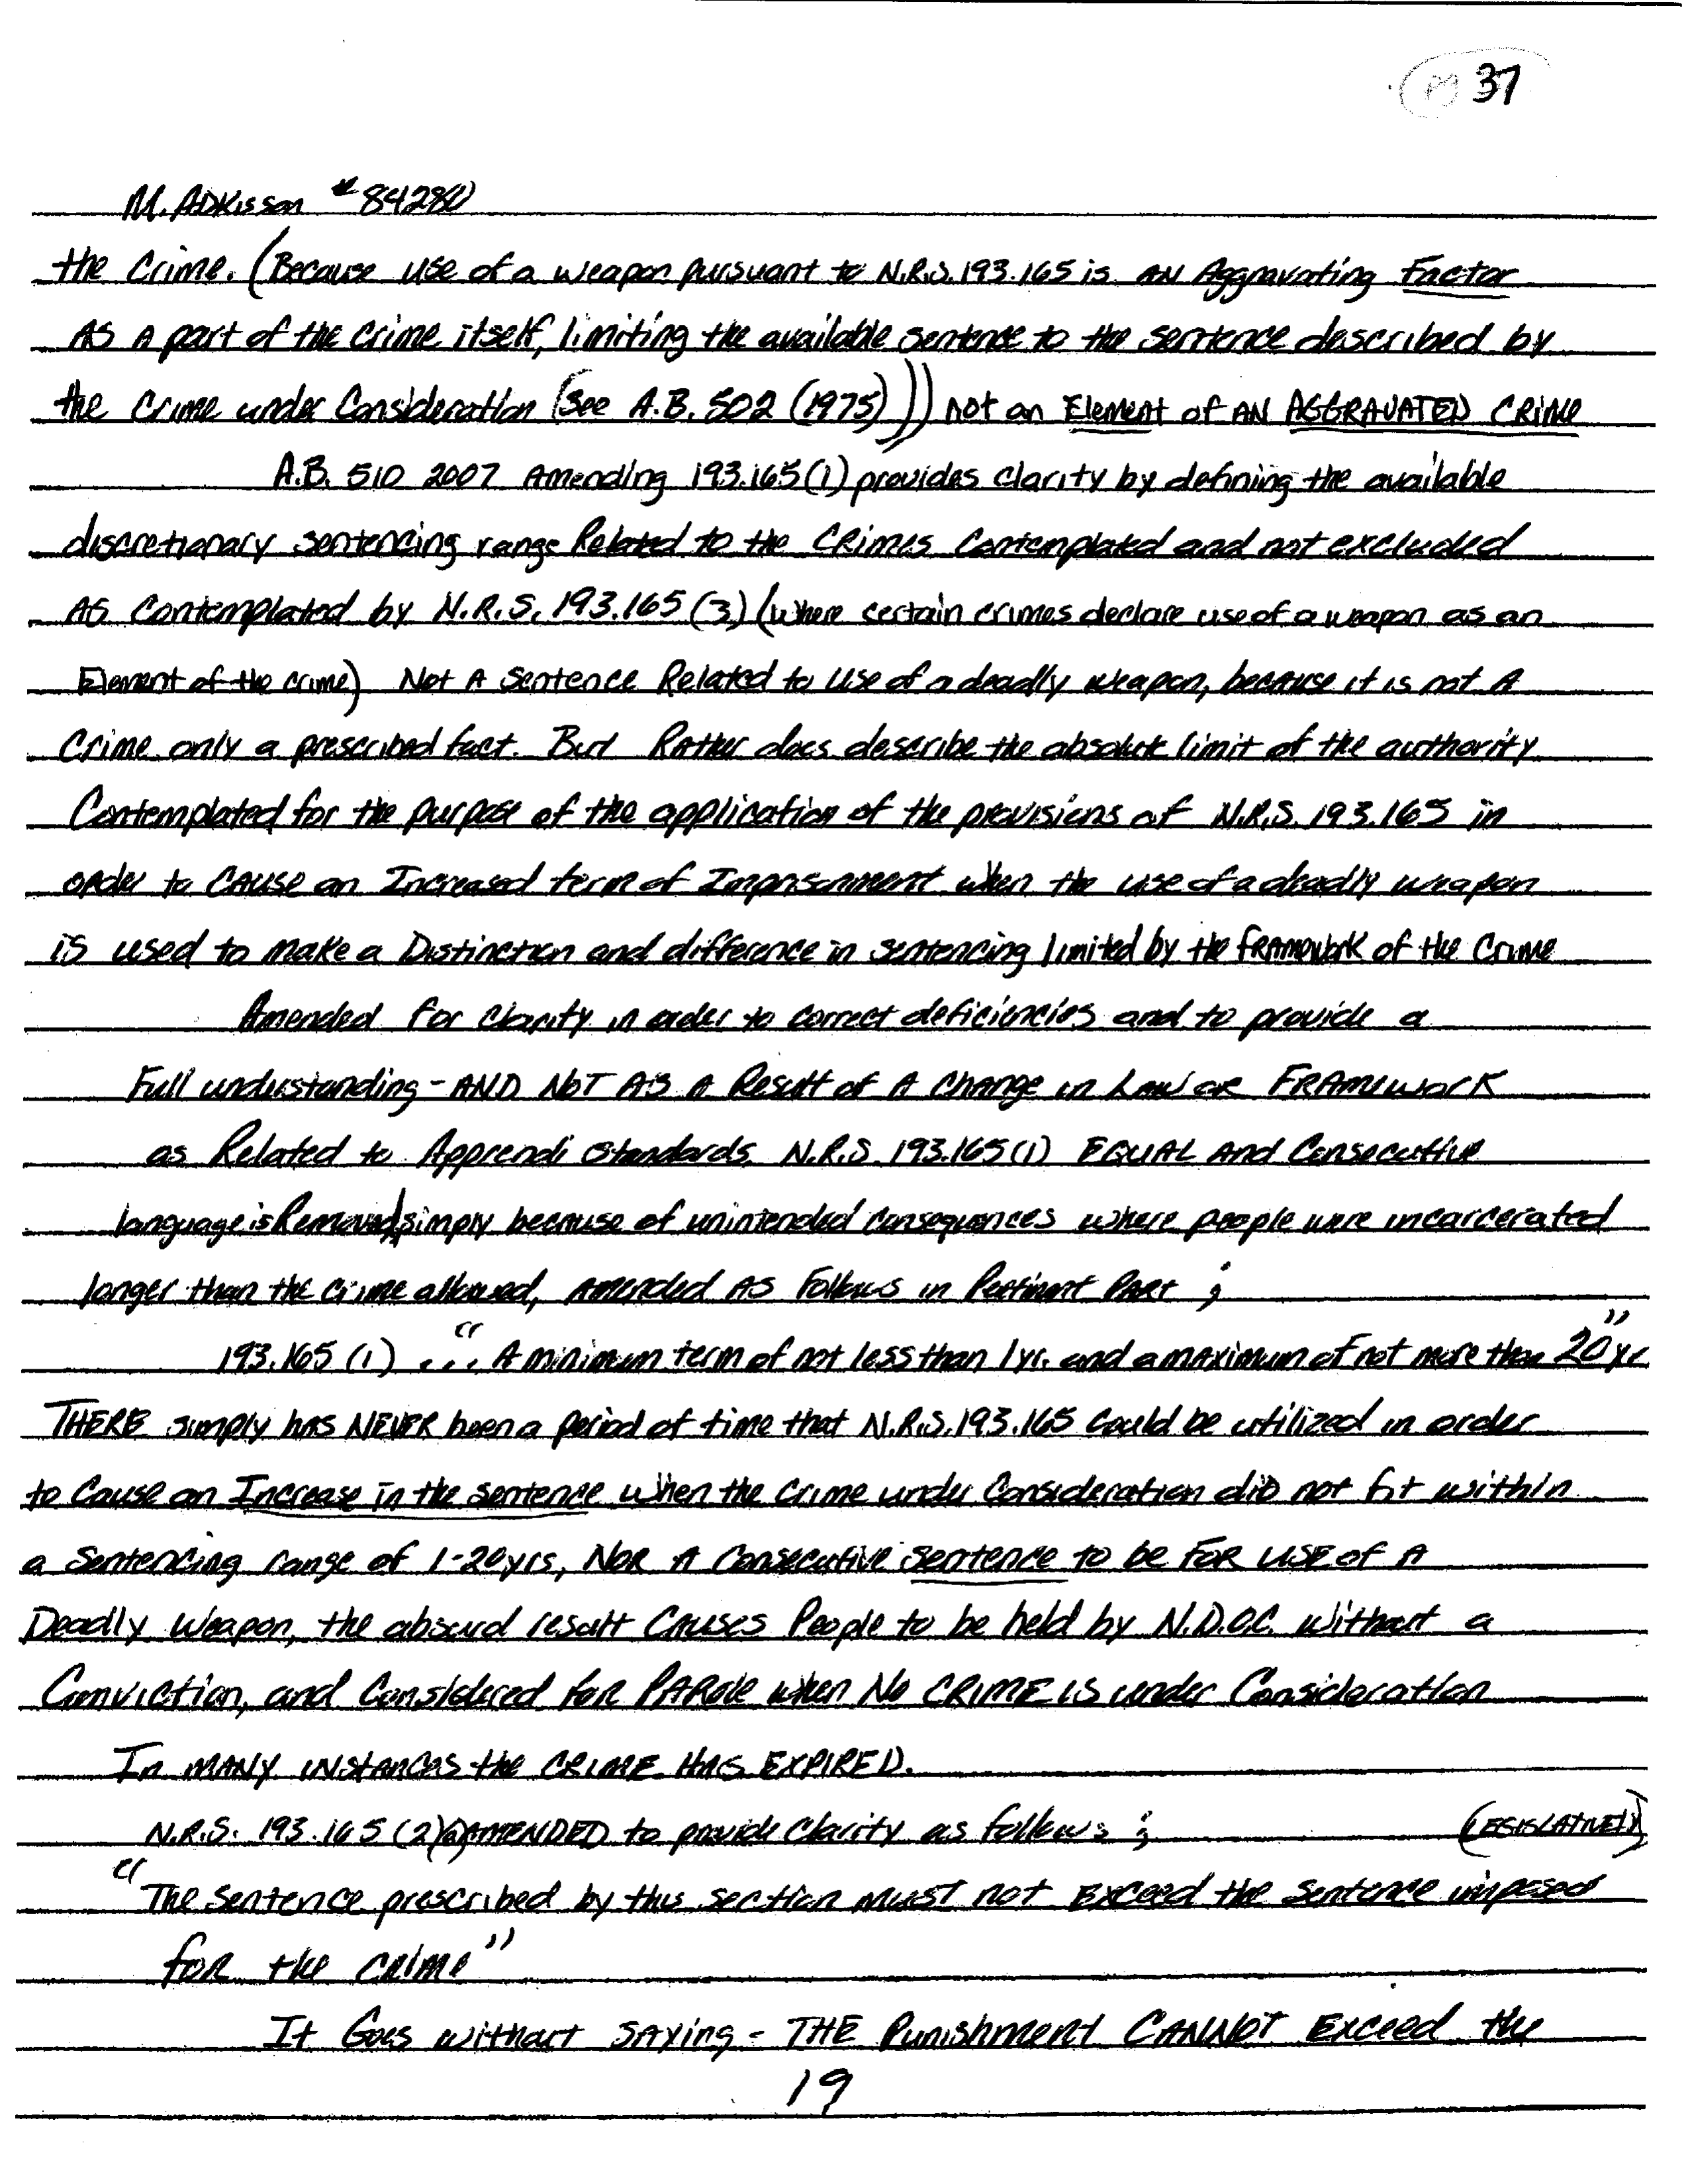 pg 37
M. ADKisson # 84280
the Crime. (Because use of a weapon pursuant to N.R.S. 193.165 is AN Aggravating Factor
AS A part of the Crime itself, limiting the available sentence to the sentence described by
the Crime under Consideration (See A.B. 502 (1975))) not an Element of AN AGGRAVATED CRIME
A.B. 510 2007 Amending 193.165(1) provides Clarity by defining the available
discretionary sentencing range Related to the CRIMES Contemplated and not excluded
AS Contemplated by N.R.S. 193.165 (3) (where certain crimes declare use of a weapon as an
Element of the crime) Not A Sentence Related to Use of a deadly weapon, because it is not A
Crime only a prescribed fact. But Rather does describe the absolute limit of the authority
Contemplated for the purpose of the application of the provisions of N.R.S. 193.165 in
order to CAUSE an Increased term of Imprisonment when the use of a deadly weapon
is used to make a Distinction and difference in sentencing limited by the FRAMEWORK of the Crime
Amended for Clarity in order to correct deficiencies and to provide a
Full understanding - AND NOT AS A Result of A Change in Law or FRAMEWORK
as Related to Apprendi Standards. N.R.S. 193.165(1) EQUAL And Consecutive
language is Removed simply because of unintended consequences where people were incarcerated
longer than the crime allowed, Amended AS Follows in Pertinent PART ;
193.165 (1) ... "A minimum term of not less than 1yr. and a maximum of not more than 20 yr"
THERE simply has NEVER been a period of time that N.R.S. 193.165 Could be utilized in order
to Cause an Increase in the sentence when the Crime under Consideration did not fit within
a Sentencing range of 1-20yrs, NOR A Consecutive Sentence to be FOR USE of A
Deadly Weapon, the absurd result CAUSES People to be held by N.D.O.C. without a
Conviction, and Considered for PAROLE when No CRIME IS under Consideration
In MANY INStances the CRIME HAS EXPIRED.
N.R.S. 193.165 (2)(a) AMENDED to provide Clarity as follows ; (LEGISLATIVELY)
"The Sentence prescribed by this section must not EXCEED the Sentence imposed
for the CRIME"
It Goes without SAYing - THE Punishment CANNOT Exceed the
19